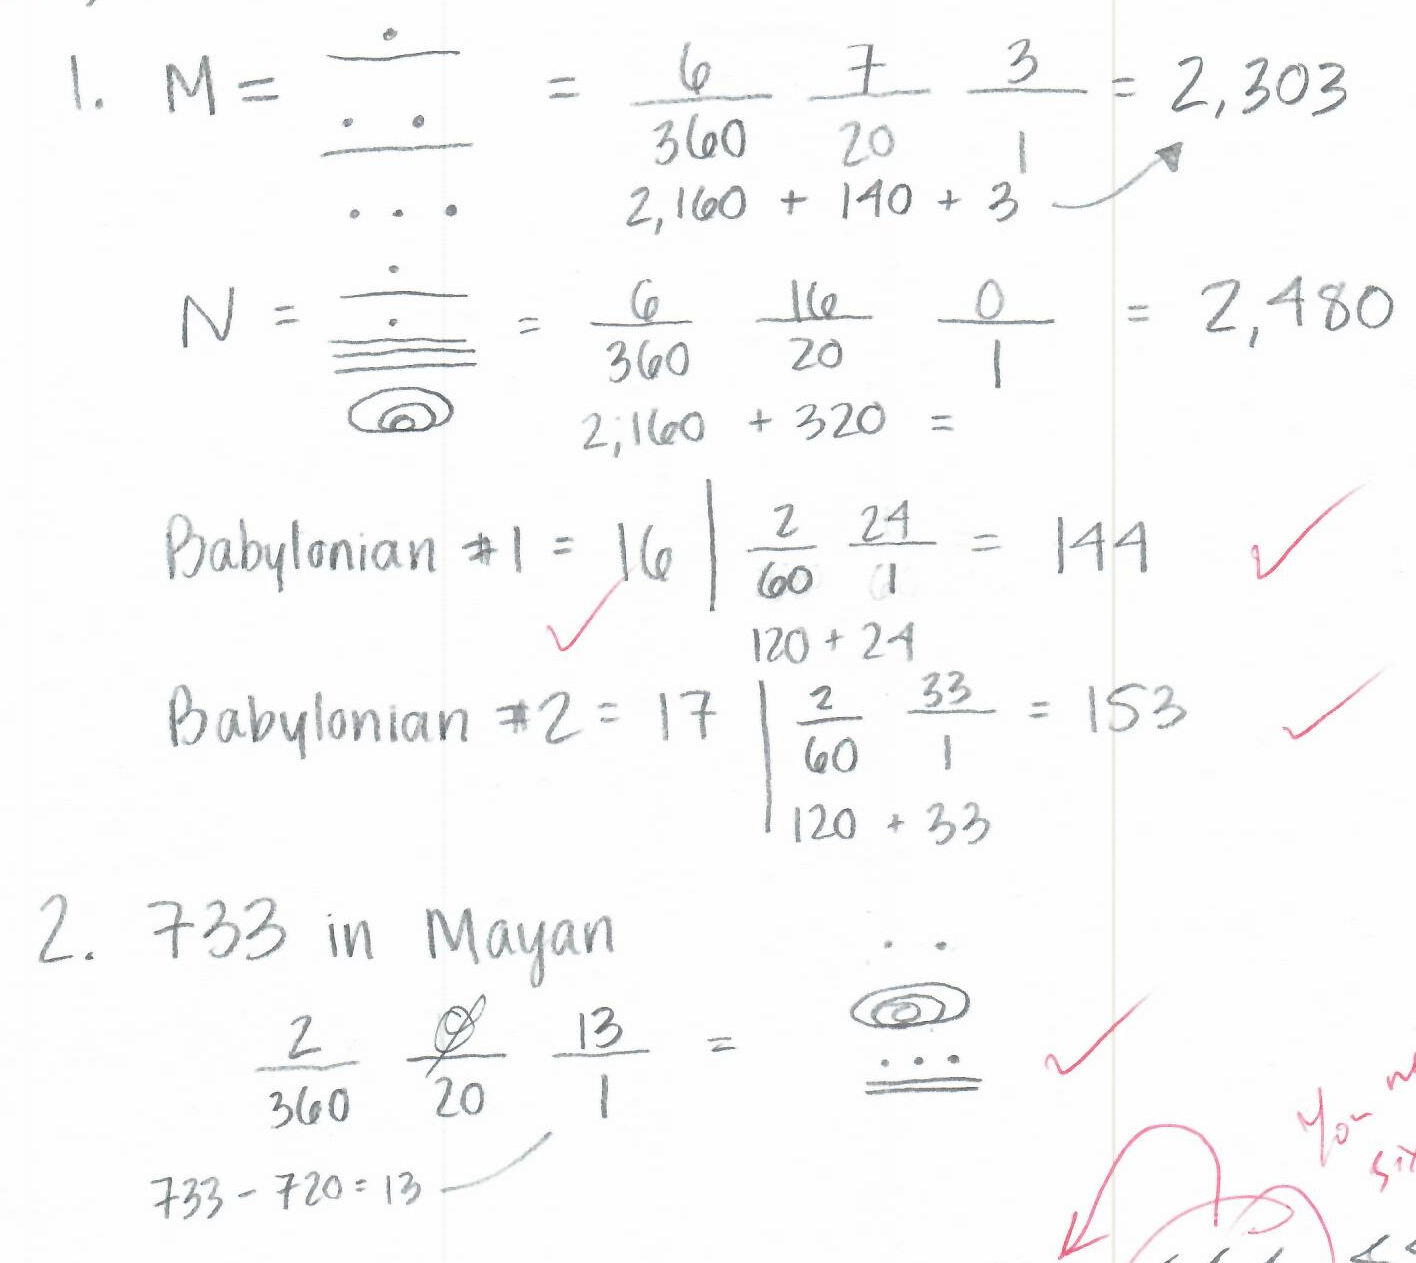 1. M = = 6/360 7/20 3/1 = 2,303
2,160 + 140 + 3
N = = 6/360 16/20 0/1 = 2,480
2,160 + 320 =
Babylonian #1 = 16 | 2/60 24/1 = 144
120 + 24
Babylonian #2 = 17 | 2/60 33/1 = 153
120 + 33
2. 733 in Mayan
2/360 0/20 13/1 =
733 - 720 = 13
You